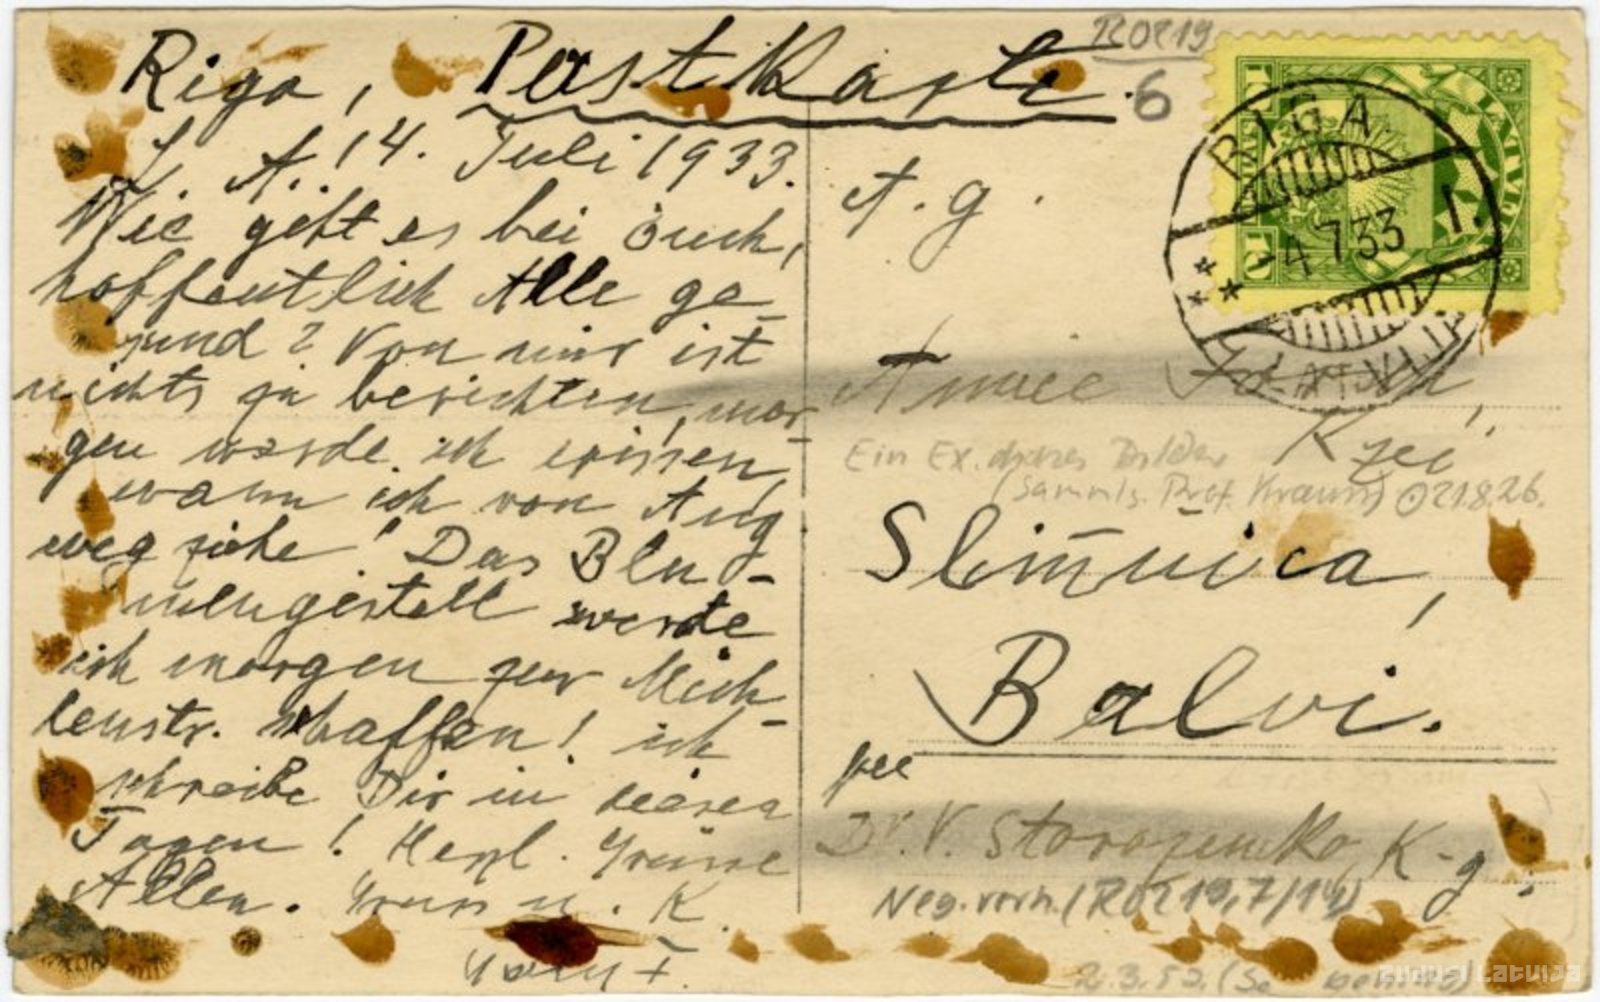 Riga, Postkarte.
L. A.! 4. Juli 1933.
Wie geht es bei Euch,
hoffentlich Alle ge-
sund? Von mir ist
nichts zu berichten, mor-
gen werde ich wissen,
wann ich von Aug
weg ziehe! Das Blu-
mengestell werde
ich morgen zur Müh-
lenstr. schaffen! ich
schreibe Dir in diesen
Tagen! Herzl. Grüsse
Allen. Gruss u. K.
ROZ19
6
LATVIJA
RIGA
-4 7.33
I.
LATVIJA
A. g.
Annie
Kzei
Ein Ex. dieses Bildes
(Samml. Prof. Kraum) 21.8.26.
Slimnica,
Balvi.
pee
Dr. V. Storozenko, K-g;
Neg. vorh. (ROZ19,7/14)
2.3.53.
zudusi Latvija